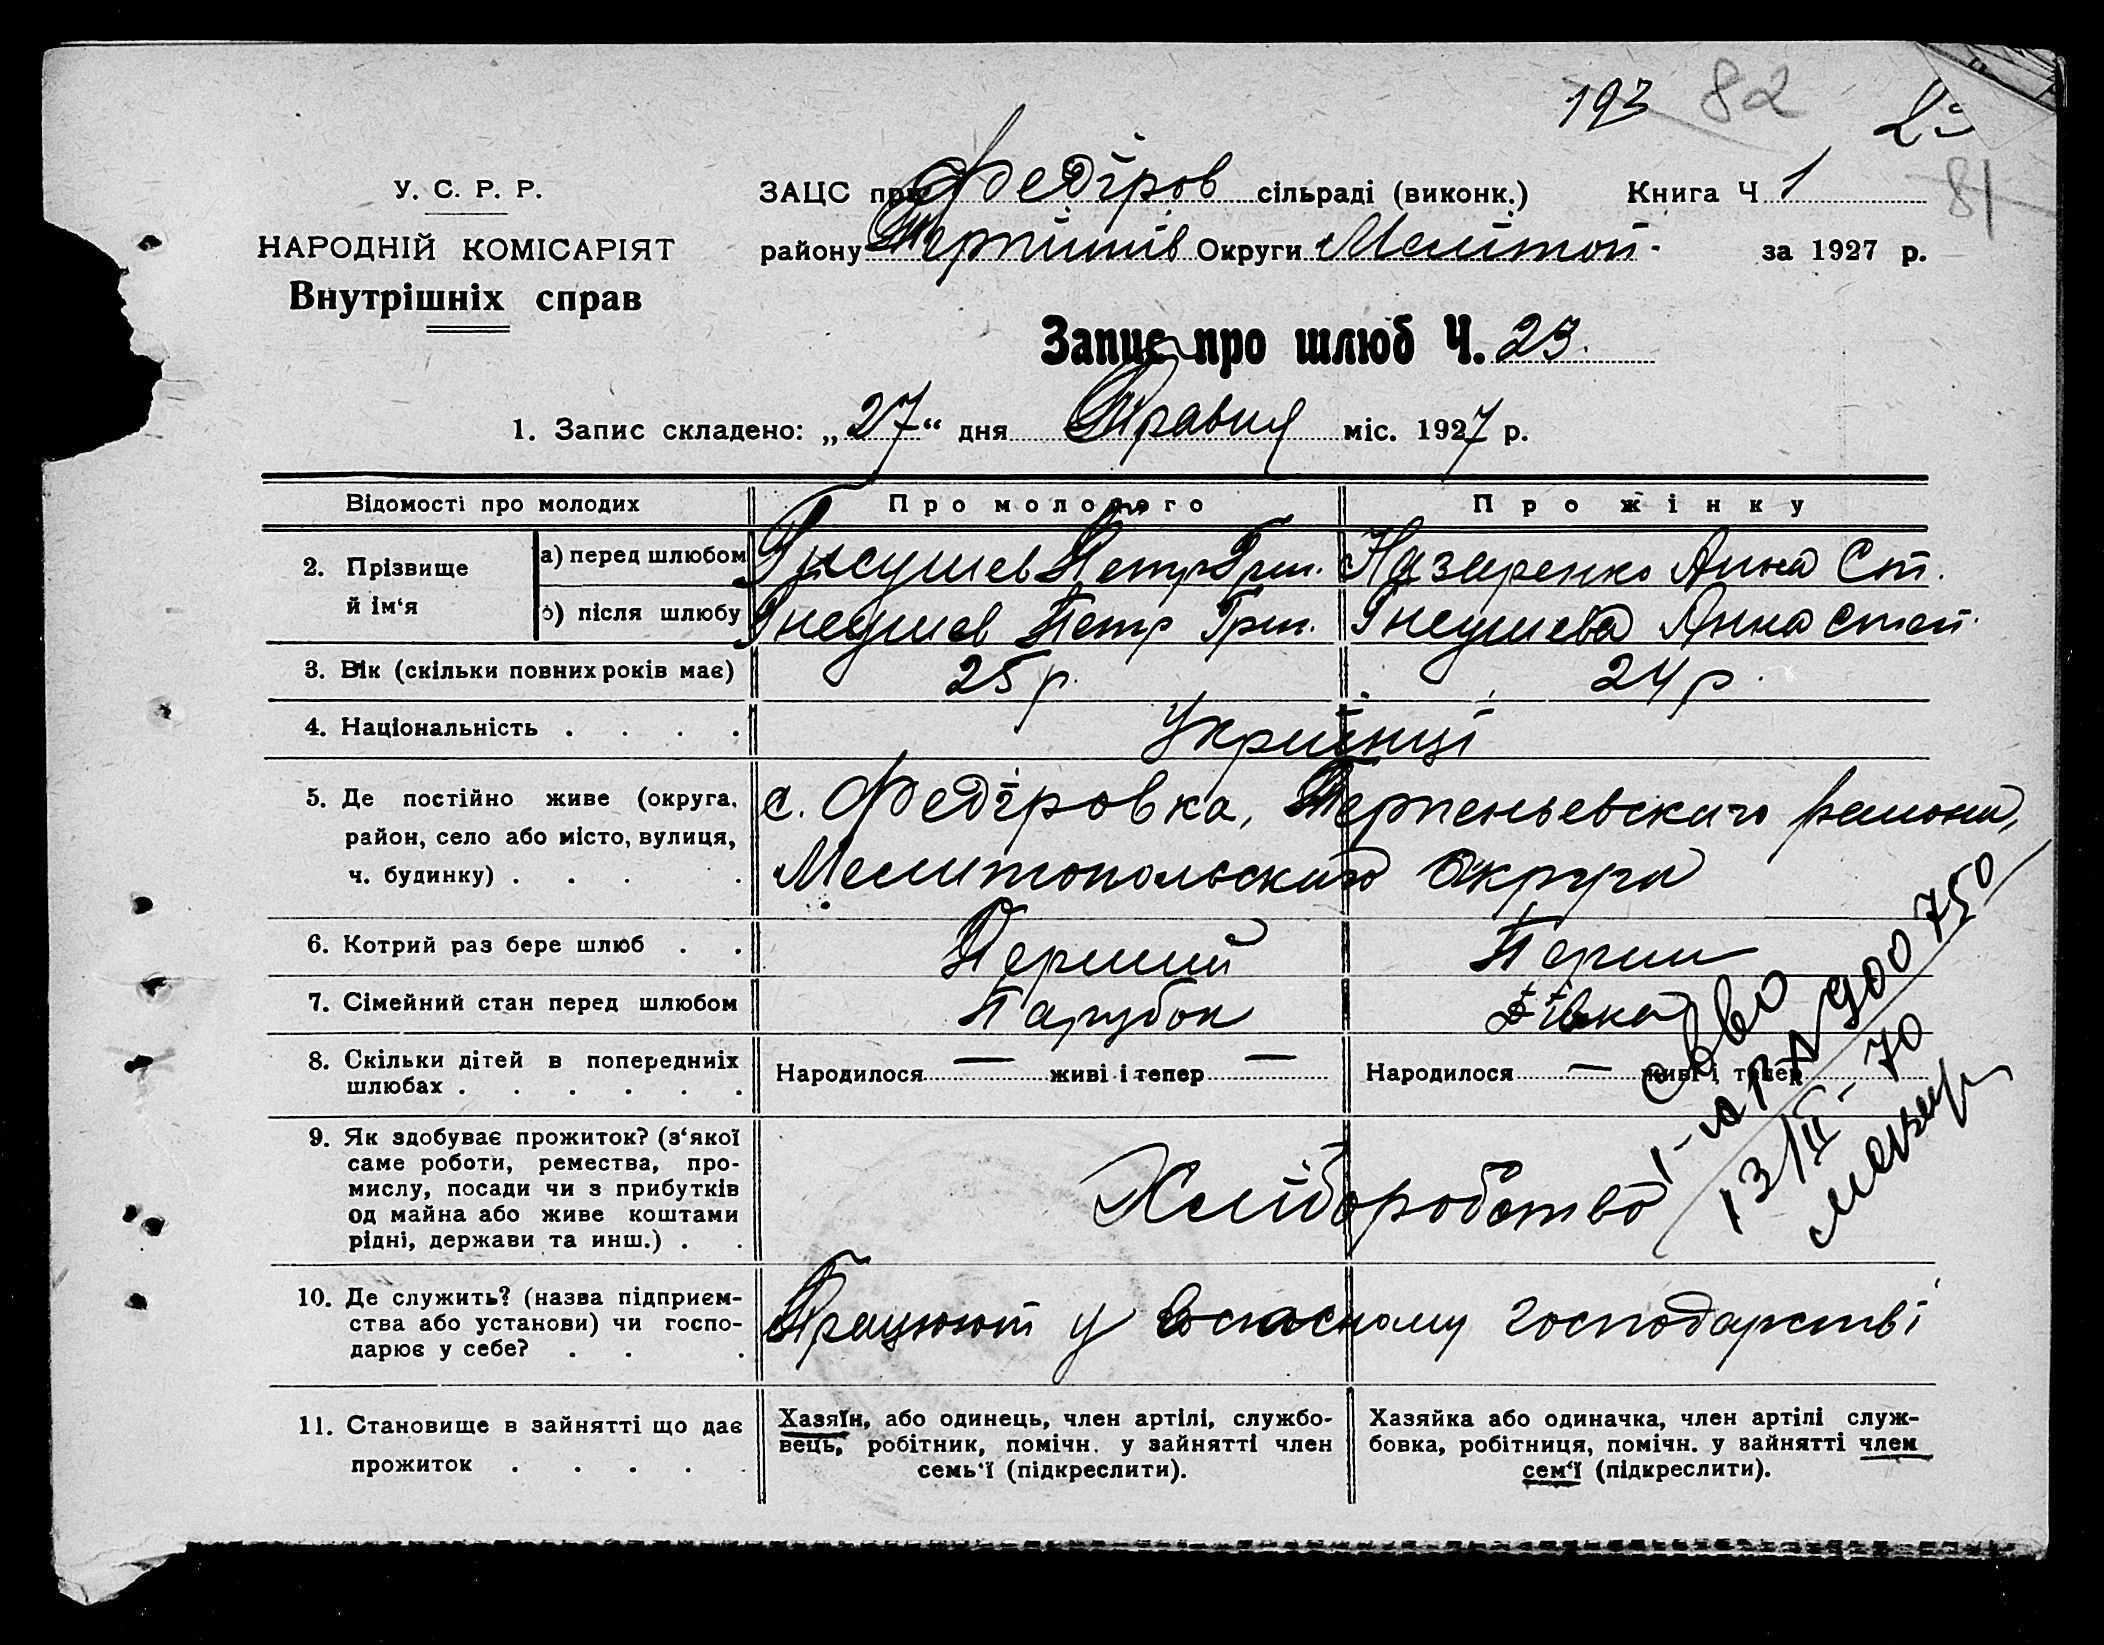 193 82
81
У. С. Р. Р.
НАРОДНІЙ КОМІСАРІЯТ
Внутрішніх справ
ЗАЦС при Федіров сільраді (виконк.) Книга Ч 1
району Терпінів Округи Меліто́п. за 1927 р.
Запис про шлюб Ч. 23.
1. Запис складено: „27“ дня Травня міс. 1927 р.
Відомості про молодих Про молодого Про жінку
2. Прізвище й ім‘я
а) перед шлюбом Гнєушев Петр Григ. Назаренко Анна Ст.
б) після шлюбу Гнеушев Петр Григ. Гнеушева Анна Степ.
3. Вік (скільки повних років має) 25 р. 24 р.
4. Національність . . . . Украінці
5. Де постійно живе (округа, район, село або місто, вулиця, ч. будинку) . . . .
с. Федіровка, Терпеньевскаго района,
Мелитопольскаго Округа
6. Котрий раз бере шлюб . . Перший Перш
7. Сімейний стан перед шлюбом Парубок Дівка
8. Скільки дітей в попередниіх шлюбах . . . . . .
Народилося — живі і тепер — Народилося — живі і тепер
9. Як здобуває прожиток? (з‘якої
саме роботи, ремества, про-
мислу, посади чи з прибутків
од майна або живе коштами
рідні, держави та инш.) . .
Хліборобство
10. Де служить? (назва підприєм-
ства або установи) чи госпо-
дарює у себе? . . .
Працюют у власному господарстві
11. Становище в зайнятті що дає
прожиток . . . . .
Хазяїн, або одинець, член артілі, службо-
вець, робітник, помічн. у зайнятті член
семь‘ї (підкреслити).
Хазяйка або одиначка, член артілі служ-
бовка, робітниця, помічн. у зайнятті член
сем‘ї (підкреслити).
900750
13/II-70